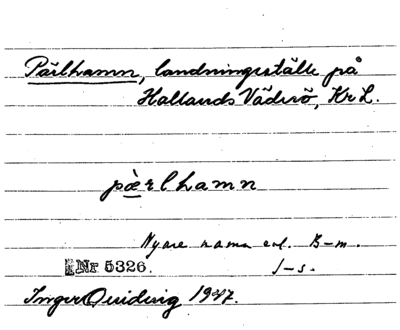 Pärlhamn, landningsställe på
Hallands Väderö, Kr L.
pæ̀rlhamn
Nyare namn enl. B-m.
Nr 5326. J-s.
Inger Quiding 1947.